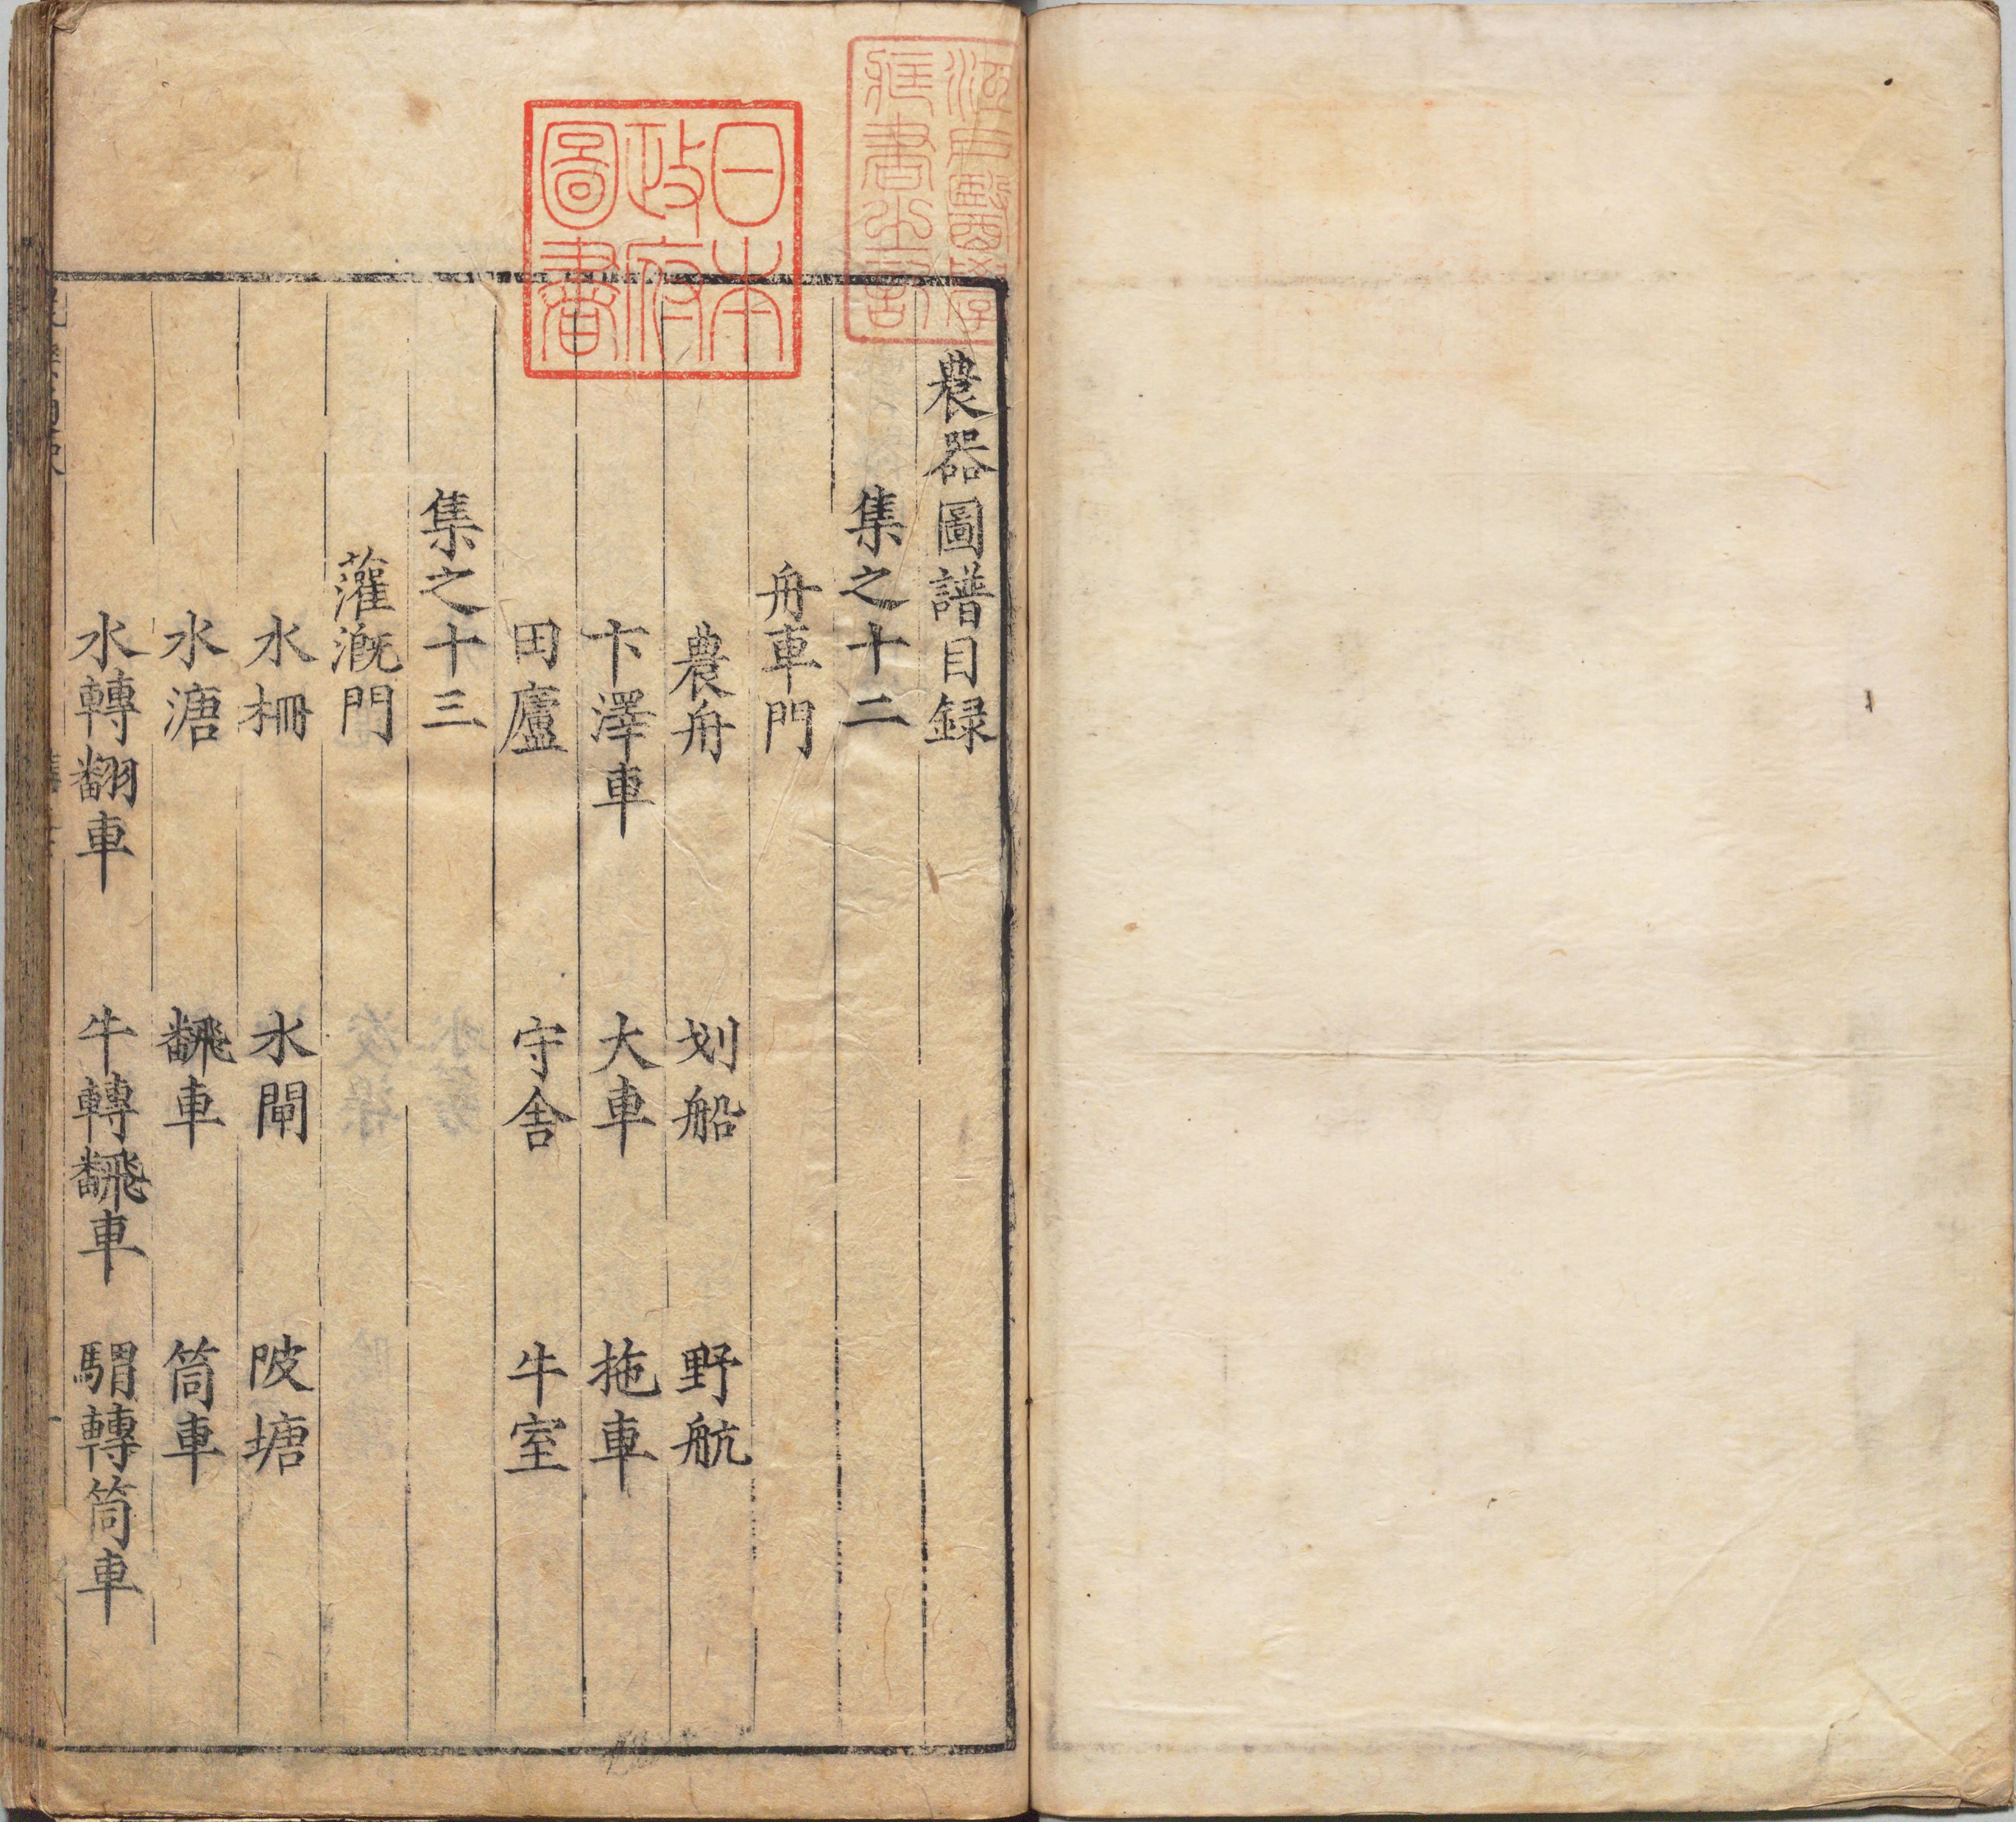 農器圖譜目録
集之十二
舟車門
農舟　划船　野航
下澤車　大車　拖車
田廬　守舍　牛室
集之十三
灌溉門
水柵　水閘　陂塘
水溏　飜車　筒車
水轉翻車　牛轉飜車　驢轉筒車
日本
政府
圖書